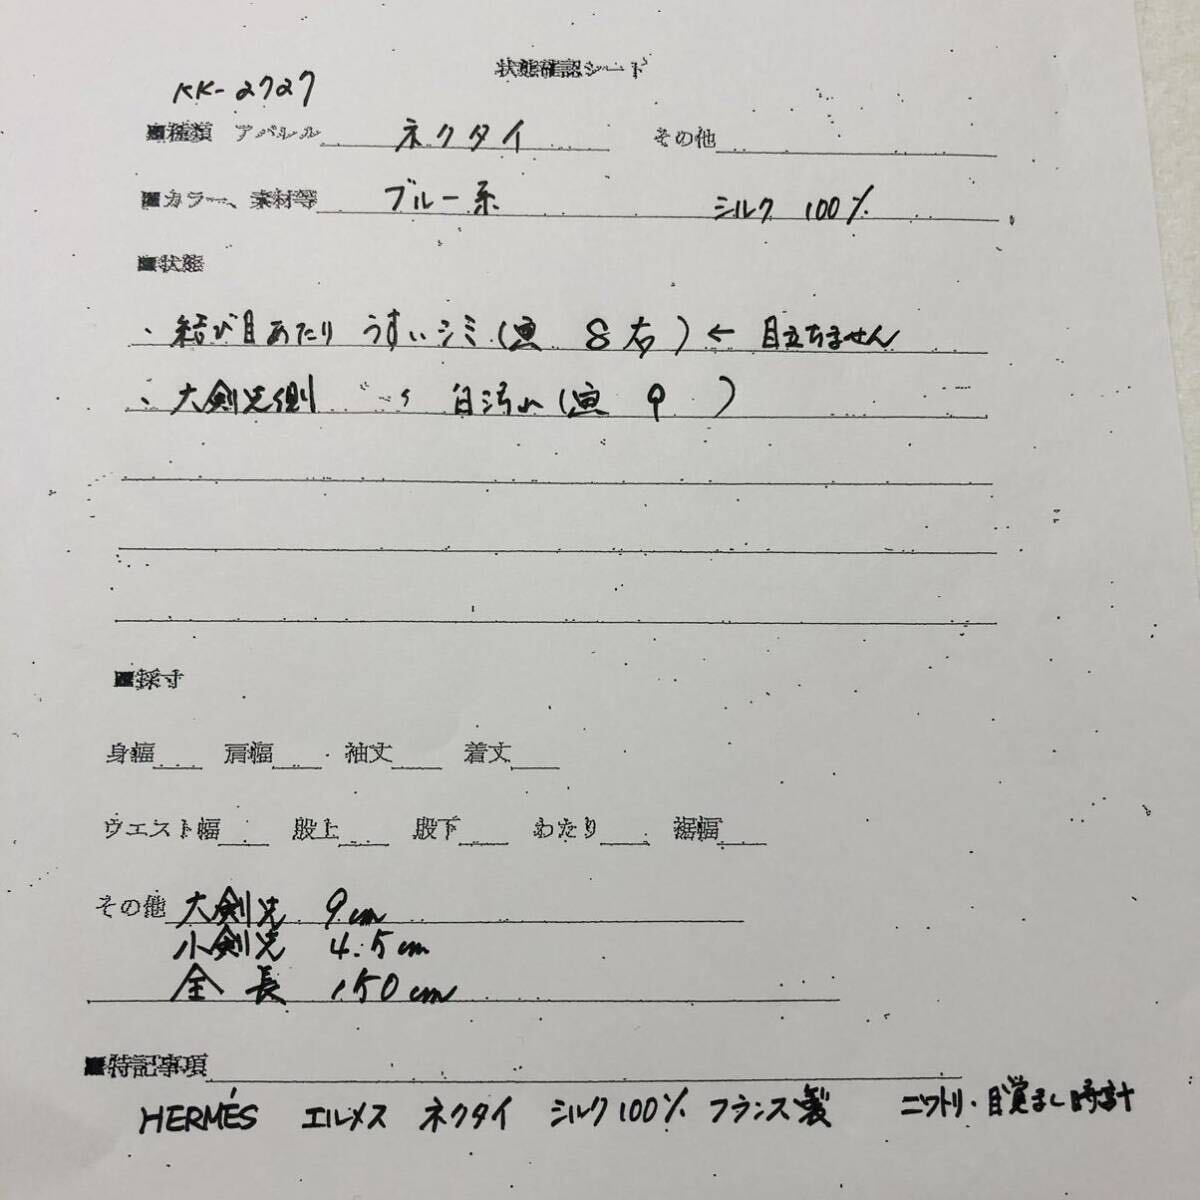 状態確認シート
KK-2727
■種類 アパレル ネクタイ その他
■カラー、素材等 ブルー系 シルク 100%
■状態
・結び目あたり うすいシミ(画 8右) ← 目立ちません
・大剣先側 〃 白汚れ(画 9 )
■採寸
身幅 肩幅 袖丈 着丈
ウエスト幅 股上 股下 わたり 裾幅
その他 大剣先 9cm
小剣先 4.5cm
全長 150cm
■特記事項
HERMÈS エルメス ネクタイ シルク100% フランス製 ニワトリ・目覚まし時計